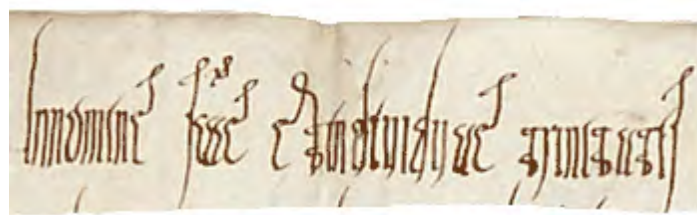 In nomine sc̄ae et indiuiduae trinitatis